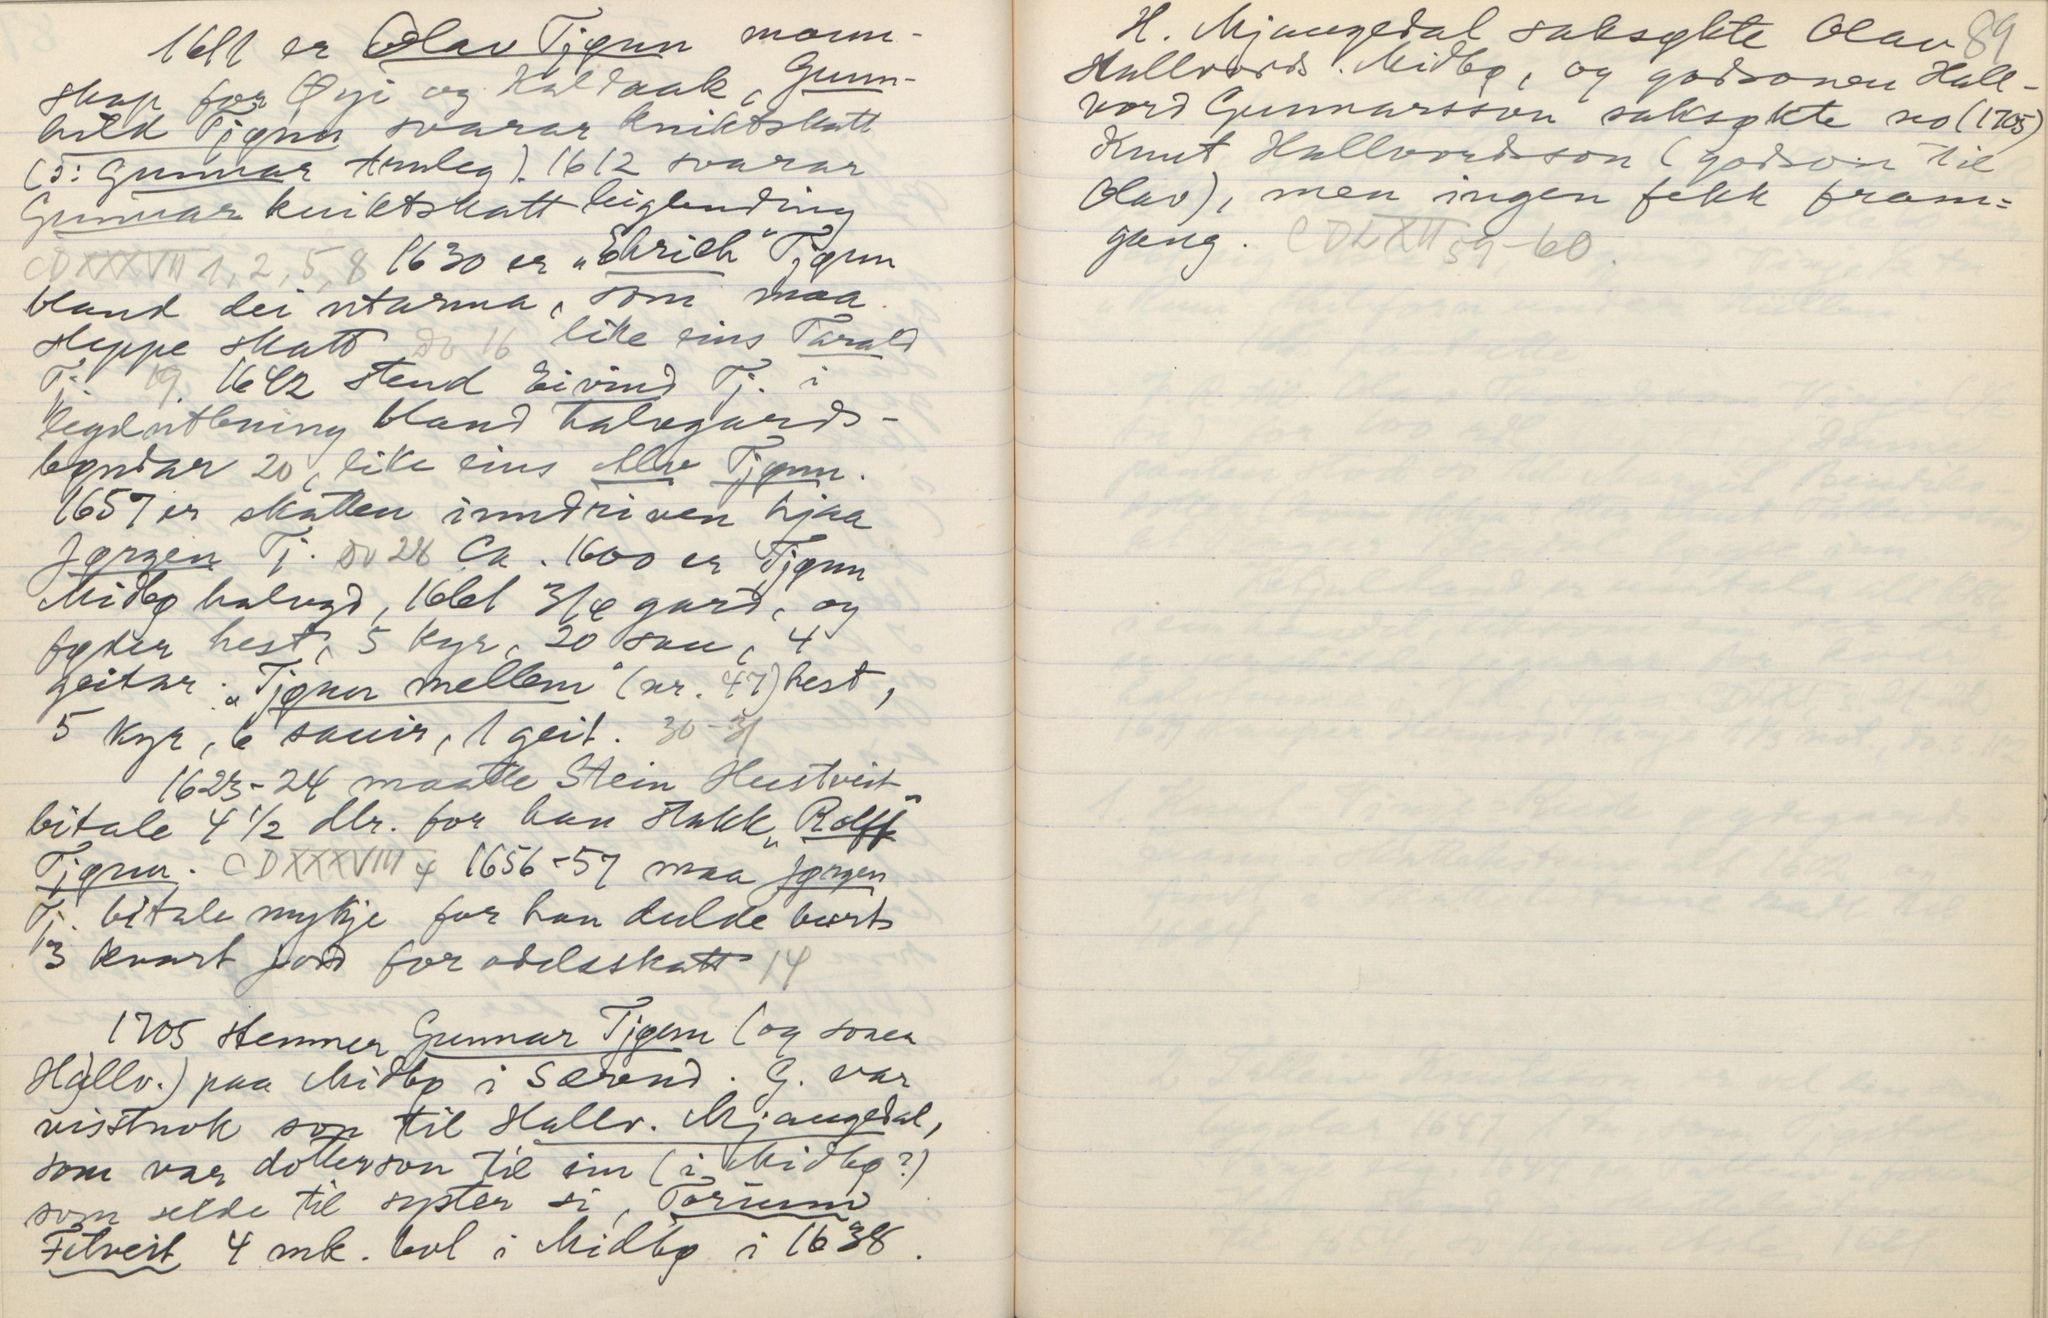 1611 er Olav Tjønn mann-
skap for Øyi og Kaldaak, Gunn-
hild Tjønn svarar kniktskatt
(ɔ: Gunnar Armleg). 1612 svarar
Gunnar kniktskatt leiglending
CDXXXVII 1, 2, 5, 8 1630 er „Ehrich" Tjønn
bland dei utarma, som maa
sleppe skatt do 16 like eins Tarald
Tj. 19. 1642 stend Eivind Tj. i
legdutlening bland halvgards-
bøndar 20, like eins Alv Tjønn.
1657 er skatten inndriven hjaa
Jørgen Tj. do 28 Ca. 1600 er Tjønn
Midbø halvgd, 1661 3/4 gard, og
føder hest, 5 kyr, 20 sau, 4
geitar. „Tjønn mellem" (nr. 47) hest,
5 kyr, 6 sauir, 1 geit. 30-31
1623-24 maatte Stein Hustveit
bitale 4 1/2 dlr. for han stakk „Rolff"
Tjønn. CDXXXVIII 4 1656-57 maa Jørgen
Tj. bitale mykje for han dulde burt
3 kvart jord for odelsskatt 14
1705 stemner Gunnar Tjønn (og sonen
Hallv.) paa Midbø i Særend. G. var
visstnok son til Hallv. Mjaugedal,
som var dotterson til ein (i Midbø?)
som selde til syster si, Torunn
Filveit 4 mk. bol i Midbø i 1638.
H. Mjaugedal saksøkte Olav 89
Hallvords. Midbø, og godsonen Hall-
vord Gunnarsson saksøkte no (1705)
Knut Hallvordsson (godson til
Olav), men ingen fekk fram=
gang. CDLXII 59-60.